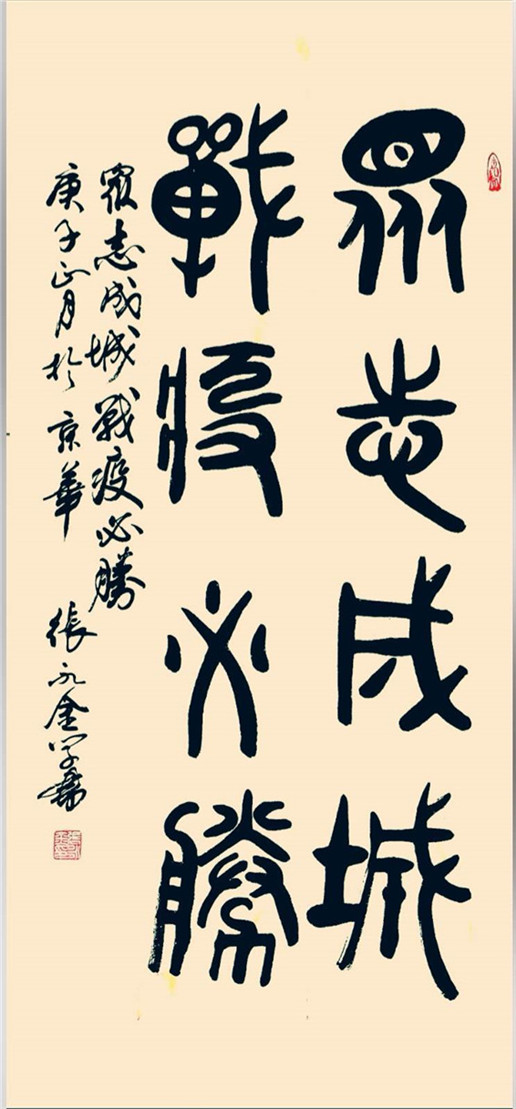 眾志成城
戰疫必勝
眾志成城戰疫必勝
庚子正月於京華 張永金学